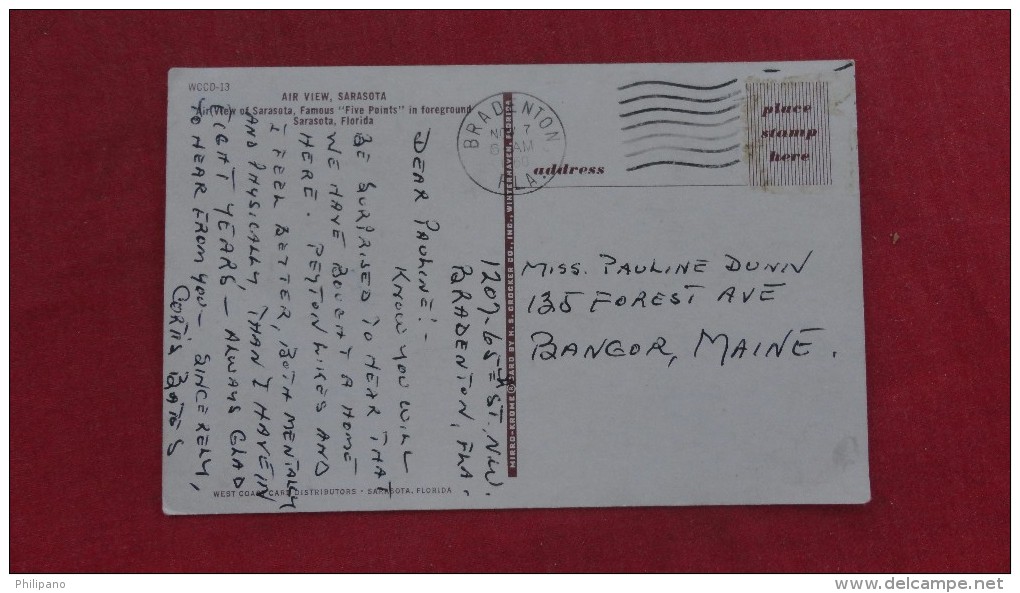 WCCD-13
AIR VIEW, SARASOTA
Air View of Sarasota, Famous "Five Points" in foreground
Sarasota, Florida
1207-65TH ST. N.W.
BRADENTON, FLA.
DEAR PAULINE:-
KNOW YOU WILL
BE SURPRISED TO HEAR THAT
WE HAVE BOUGHT A HOME
HERE. PEYTON LIKES AND
I FEEL BETTER, BOTH MENTALLY
AND PHYSICALLY THAN I HAVE IN
EIGHT YEARS, - ALWAYS GLAD
TO HEAR FROM YOU - SINCERELY,
BATES
WEST COAST CARD DISTRIBUTORS • SARASOTA, FLORIDA
MIRRO-KROME® CARD BY H. S. CROCKER CO., INC., WINTERHAVEN, FLORIDA
BRADENTON
7
AM
FLA.
address
place
stamp
here
MISS. PAULINE DUNN
135 FOREST AVE
BANGOR, MAINE.
Philipano
www.delcampe.net